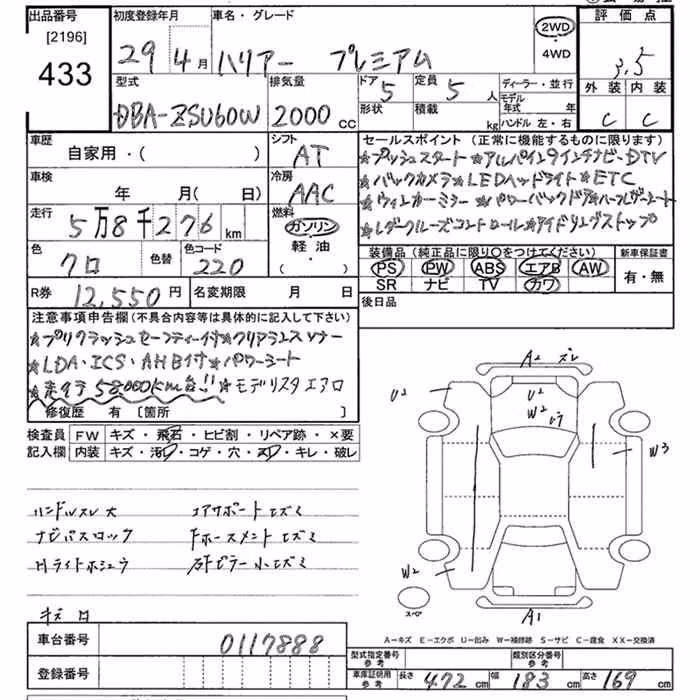 出品番号 初度登録年月 車名・グレード 2WD 評価点
[2196] 29 4月 ハリアー プレミアム ・ 3.5
433 4WD
型式 排気量 ドア 定員 ディーラー・並行 外装 内装
DBA-ZSU60W 2000cc 5 5人 モデル年式 年 C C
形状 積載 kg ハンドル 左・右
車歴 シフト セールスポイント(正常に機能するものに限ります)
自家用・( ) AT ★プッシュスタート★アルパイン9インチナビ-DTV
車検 冷房 ★バックカメラ★LEDヘッドライト★ETC
年 月( 日) AAC ★ウィンカーミラー★パワーバックドア★ハーフレザーシート
走行 燃料 ★レダークルーズコントロール★アイドリングストップ
5万8千276km ガソリン
軽油・
( ・ )
色 色替 色コード 装備品(純正品に限り○をつけてください) 新車保証書
クロ 220 PS PW ABS エアB AW 有・無
SR ナビ TV カワ
R券 12,550円 名変期限 月 日 後日品
注意事項申告欄(不具合内容等は具体的に記入して下さい)
★プリクラッシュセーフティー付★クリアランスソナー
★LDA・ICS・AHB付★パワーシート
★走行 58,000km台!!★モデリスタエアロ
修復歴 有 [箇所 ]
検査員 FW キズ・飛石・ヒビ割・リペア跡・×要
記入欄 内装 キズ・汚れ・コゲ・穴・スレ・キレ・破レ
ハンドルスレ大 コアサポートヒズミ
ナビパスロック
Hライトホシュウ
キズ 口
A2 ズレ
U2 U2
W2
W3
W2
スペア A1
A-キズ E-エクボ U-凹み W-補修跡 S-サビ C-腐食 XX-交換済
車台番号 0117888
登録番号
型式指定番号 参考 類別区分番号 参考
車庫証明用 参考 長さ 472cm 幅 183cm 高さ 169cm